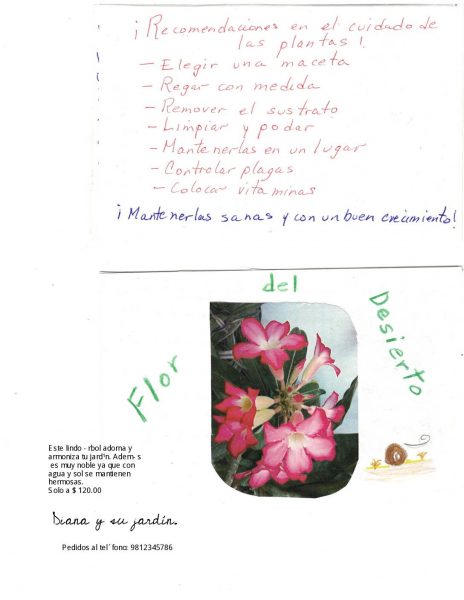 ¡Recomendaciones en el cuidado de
las plantas!
- Elegir una maceta
- Regar con medida
- Remover el sustrato
- Limpiar y podar
- Mantenerlas en un lugar
- Controlar plagas
- Colocar vitaminas
¡Mantenerlas sanas y con un buen crecimiento!
Flor del Desierto
Este lindo - rbol adorna y
armoniza tu jard¹n. Adem- s
es muy noble ya que con
agua y sol se mantienen
hermosas.
Solo a $ 120.00
Diana y su jardín.
Pedidos al tel´ fono: 9812345786